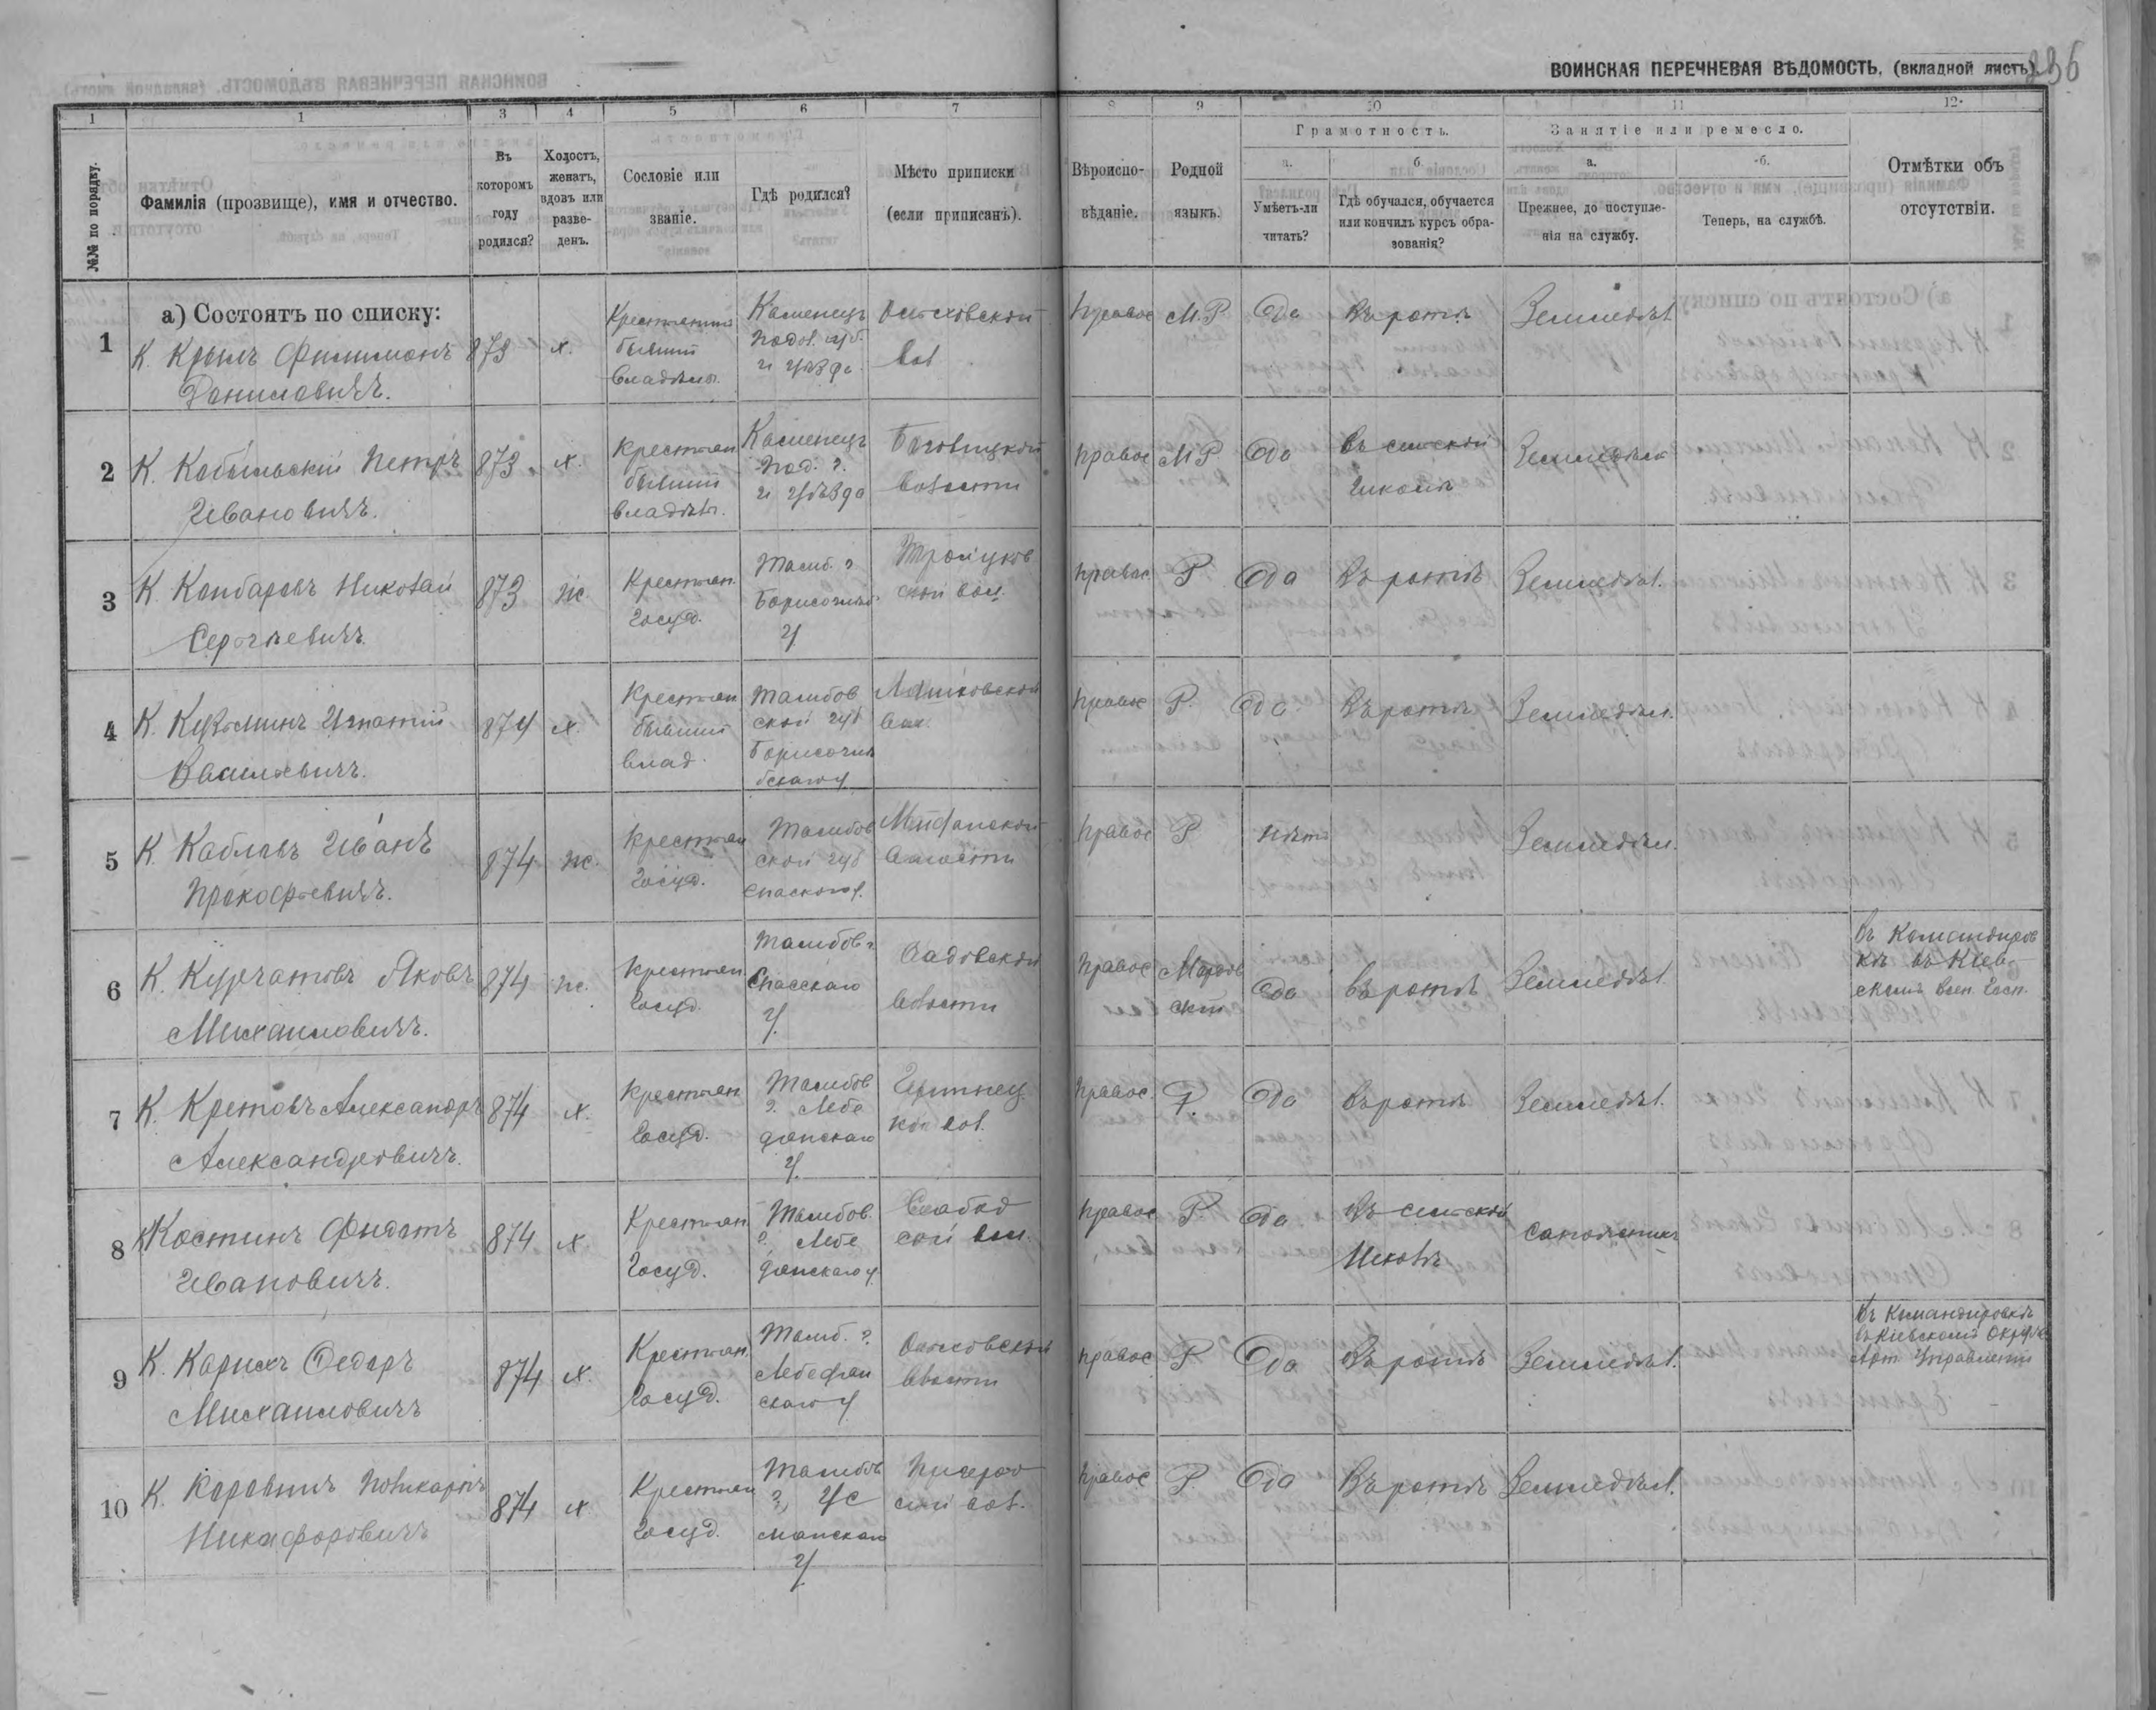 ВОИНСКАЯ ПЕРЕЧНЕВАЯ ВѢДОМОСТЬ, (вкладной листъ)
236
1 1 3 4 5 6 7 8 9 10 11 12
№№ по порядку.
Фамилія (прозвище), имя и отчество.
Въ
которомъ
году
родился?
Холостъ,
женатъ,
вдовъ или
разве-
денъ.
Сословіе или
званіе.
Гдѣ родился?
Мѣсто приписки
(если приписанъ).
Вѣроиспо-
вѣданіе.
Родной
языкъ.
Грамотность.
а.
Умѣетъ-ли
читать?
б.
Гдѣ обучался, обучается
или кончилъ курсъ обра-
зованія?
Занятіе или ремесло.
а.
Прежнее, до поступле-
нія на службу.
б.
Теперь, на службѣ.
Отмѣтки объ
отсутствіи.
а) Состоятъ по списку:
1
К. Крылъ Филимонъ
Даниловичъ.
873
х.
Крестьянинъ
бывший
владѣль.
Каменецъ
Подол. губ.
и уѣзда
вол
Правос
М.Р
Да
Въ ротѣ
Земледѣл.
2
К. Кобыльский Петръ
Ивановичъ.
873
х.
Крестьян
бывший
владѣл.
Каменецъ
Под. г.
и уѣзда
волости
Правос
МР
Да
Въ сельской
школѣ
Земледѣл
3
К. Канбаровъ Николай
Сергѣевичъ
873
ж.
Крестьян.
Госуд.
Тамб. г.
Борисоглѣб.
у.
Троицков
ской вол.
Правос
Р
Да
Въ ротѣ
Земледѣл.
4
К. Кузьминъ Игнатий
Васильевичъ.
874
х.
Крестьян
бывший
влад.
Тамбов
ской губ
Борисоглѣ
бскаго у.
вол.
Правос
Р.
Да
Въ ротѣ
Земледѣл.
5
К. Кабловъ Иванъ
Прокофьевичъ.
874
ж.
Крестьян
Госуд.
Тамбов
ской губ
Спаского у.
волости
Правос
Р
Нѣтъ
Земледѣл.
6
К. Курчатовъ Яковъ
Михайловичъ.
874
ж.
Крестьян
Госуд.
Тамбов. г.
Спасскаго
у.
волости
Правос
Мордов
ский
Да
Въ ротѣ
Земледѣл.
Въ Командиров
кѣ въ Киев-
скомъ воен. Госп.
7
К. Кретовъ Александръ
Александровичъ.
874
х.
Крестьян
Госуд.
Тамбов
г. Лебе
дянскаго
у.
вол.
Правос
Р.
Да
Въ ротѣ
Земледѣл.
8
К Костинъ Филатъ
Ивановичъ.
874
х
Крестьян
Госуд.
Тамбов.
г. Лебе
дянскаго у
Слобод
ской вол.
Правос
Р.
Да
Въ сельской
Школѣ
Сапожникъ
9
К. Карихъ Федоръ
Михайловичъ
874
х.
Крестьян
Госуд.
Тамб. г.
Лебедян
скаго у
волости
Правос
Р
Да
Въ ротѣ
Земледѣл.
Въ Командировкѣ
въ Киевскомъ Окруж
Арт Управлении
10
К. Поликарпъ
Никифоровичъ
874
х.
Крестьян
Госуд.
Тамбов
г. Ус
манскаго
у
вол.
Правос
Р.
Да
Въ ротѣ
Земледѣл.